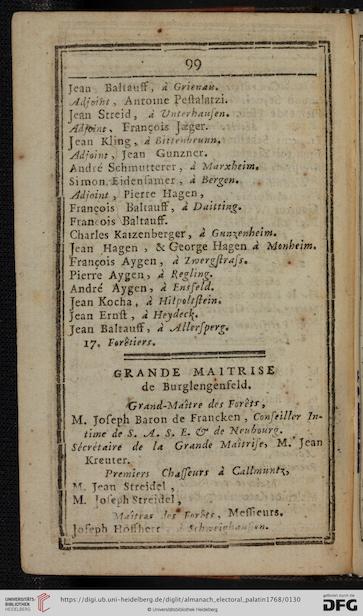 99
Jean Baltauff, à Grienau.
Adjoint, Antoine Pestalatzi.
Jean Streid, à Unterhausen.
Adjoint, François Jæger.
Jean Kling, à Bittenbrunn.
Adjoint, Jean Gunzner.
André Schmutterer, à Marxheim.
Simon Eidensamer, à Bergen.
Adjoint, Pierre Hagen,
François Baltauff, à Daitting.
François Baltauff.
Charles Katzenberger, à Gunzenheim.
Jean Hagen, & George Hagen à Monheim.
François Aygen, à Zwergstrass.
Pierre Aygen, à Regling.
André Aygen, à Ensfeld.
Jean Kocha, à Hilpoltstein.
Jean Ernst, à Heydeck.
Jean Baltauff, à Allersperg.
17. Forêtiers.
GRANDE MAITRISE
de Burglengenfeld.
Grand-Maître des Forêts,
M. Joseph Baron de Francken, Conseiller In-
time de S. A. S. E. & de Neubourg.
Sécrétaire de la Grande Maîtrise, M. Jean
Kreuter.
Premiers Chasseurs à Callmuntz,
M. Jean Streidel,
M. Joseph Streidel,
Maîtres des Forêts, Messieurs.
Joseph Hoffherr, à Schweighausen.
UNIVERSITÄTS-
BIBLIOTHEK
HEIDELBERG
https://digi.ub.uni-heidelberg.de/diglit/almanach_electoral_palatin1768/0130
© Universitätsbibliothek Heidelberg
gefördert durch die
DFG